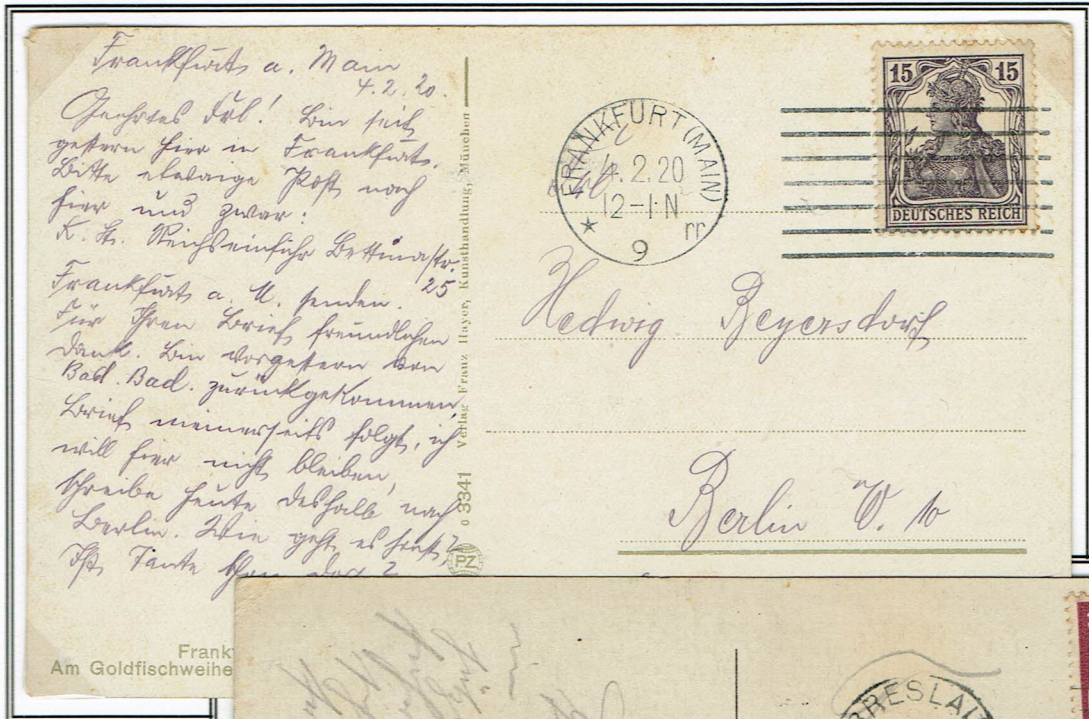 Frankfurt a. Main
4.2.20.
Geehrtes Frl! Bin seit
gestern hier in Frankfurt.
Bitte etwaige Post nach
hier und zwar:
Reichseinfuhr Bettinastr.
25
Frankfurt a. M. senden.
Für Ihren Brief freundlichen
Dank. Bin vorgestern von
Bad. Bad. zurückgekommen,
Brief meinerseits folgt, ich
will hier nicht bleiben,
schreibe heute deshalb nach
Berlin. Wie geht es sonst?
Ist Tante schon dort?
Frank
Am Goldfischweihe
0 3341 Verlag Franz Hayer, Kunsthandlung, München
PZ
FRANKFURT (MAIN)
4.2.20
12-1.N
* 9 rr
15 15
DEUTSCHES REICH
Hedwig Beyersdorf
Berlin W. 10
BRESLA